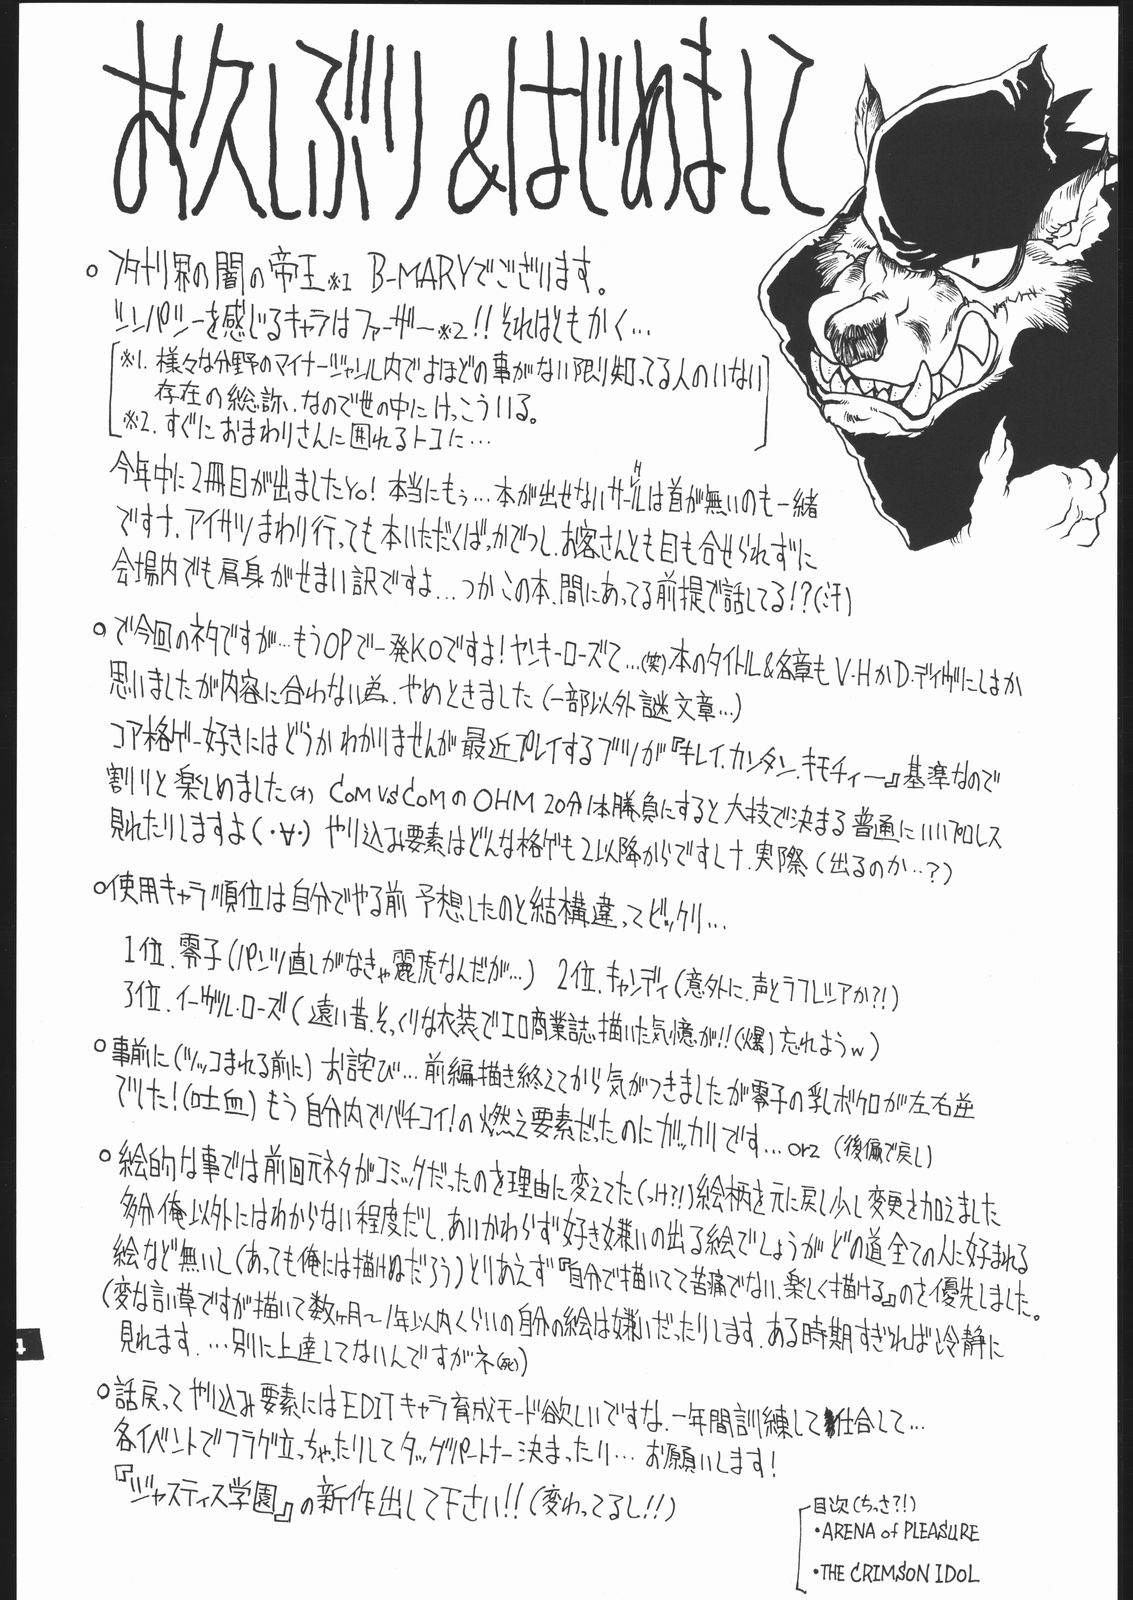 お久しぶり&はじめまして
○フタナリ界の闇の帝王※1 B-MARYでございます。
シンパシーを感じるキャラはファーザー※2!!それはともかく…
※1. 様々な分野のマイナージャンル内でよほどの事がない限り知ってる人のいない
存在の総称、なので世の中にけっこういる。
※2. すぐにおまわりさんに囲れるトコに…
今年中に2冊目が出ましたYo!本当にもぅ…本が出せないサークルは首が無いのも一緒
ですナ.アイサツまわり行っても本いただくばっかでつし.お客さんとも目も合せられずに
会場内でも肩身がせまい訳ですよ...つかこの本、間にあってる前提で話してる!?(汗)
○で今回のネタですが…もうOPで一発KOですよ!ヤンキーローズて…(笑)本のタイトル&各章もV・HかD・デイヴにしよか
思いましたが内容に合わない為、やめときました(一部以外謎文章…)
コア格ゲー好きにはどうかわかりませんが最近プレイするブツが『キレイ.カンタン.キモチィー』基準なので
割りと楽しめました(オ) COM VS COMのOHM 20分1本勝負にすると大技で決まる普通にいいプロレス
見れたりしますよ(・∀・) やり込み要素はどんな格ゲも2以降からですしナ.実際(出るのか…?)
○使用キャラ順位は自分でやる前予想したのと結構違ってビックリ…
1位.零子(パンツ直しがなきゃ麗虎なんだが…) 2位.キャンディ(意外に、声とラフレシアか?!)
3位.イーグル・ローズ(遠い昔、そっくりな衣装でエロ商業誌描いた気憶が!!(爆)忘れようw)
○事前に(ツッコまれる前に)お詫び…前編描き終えてから気がつきましたが零子の乳ボクロが左右逆
でした!(吐血)もう自分内でバチコイ!の燃え要素だったのにガッカリです…orz (後編で戻し)
○絵的な事では前回元ネタがコミックだったのを理由に変えてた(っけ?!)絵柄を元に戻し少し変更を加えました
多分俺以外にはわからない程度だし、あいかわらず好き嫌いの出る絵でしょうがどの道全ての人に好まれる
絵など無いし(あっても俺には描けぬだろう)とりあえず『自分で描いてて苦痛でない、楽しく描ける』のを優先しました。
(変な言い草ですが描いて数ヶ月〜1年以内くらいの自分の絵は嫌いだったりします.ある時期すぎれば冷静に
見れます.…別に上達してないんですがネ(死))
○話戻ってやり込み要素にはEDITキャラ育成モード欲しいですな.一年間訓練して仕合して…
各イベントでフラグ立っちゃったりしてタッグパートナー決まったり…お願いします!
『ジャスティス学園』の新作出して下さい!!(変わってるし!!)
目次(ちっさ?!)
・ARENA of PLEASURE
・THE CRIMSON IDOL
4